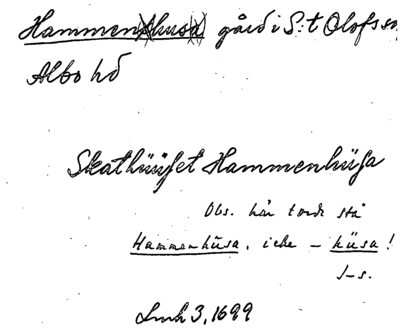 Hammenshusa gård i S:t Olofs sn,
Albo hd
Skathüüset Hammenhüsa
Obs. här torde stå
Hammenhüsa, icke – hüsa!
J-s.
Lmh 3, 1699